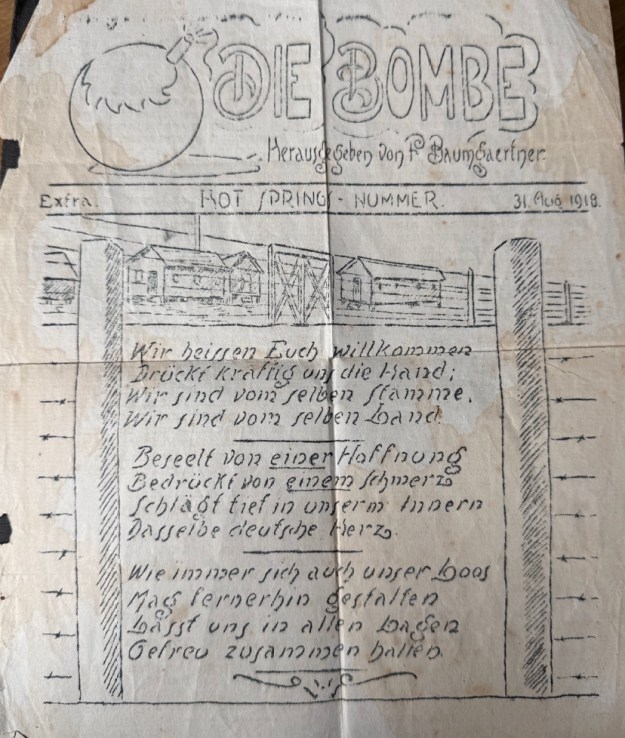 DIE BOMBE
Herausgegeben von F. Baumgaertner.
Extra. HOT SPRINGS - NUMMER. 31. Aug. 1918.
Wir heissen Euch willkommen
Drückt kräftig uns die Hand;
Wir sind vom selben Stamme,
Wir sind vom selben Land.
Beseelt von einer Hoffnung
Bedrückt von einem Schmerz
Schlägt tief in unserm Innern
Dasselbe deutsche Herz.
Wie immer sich auch unser Loos
Mag fernerhin gestalten
Lasst uns in allen Lagen
Getreu zusammen halten.